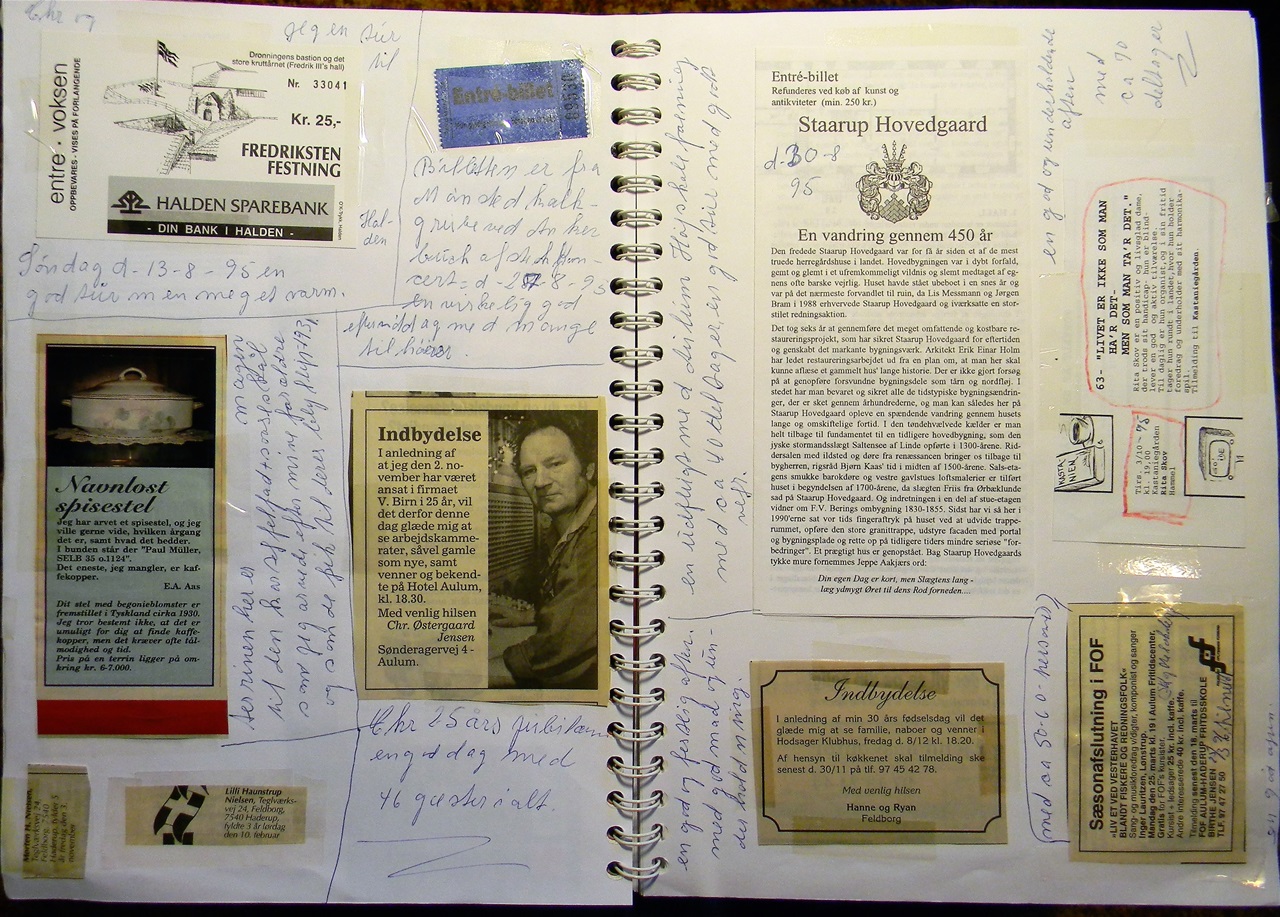 Chr og
jeg en tur
til
Hal-
den
entre · voksen
OPPBEVARES - VISES PÅ FORLANGENDE
Dronningens bastion og det
store kruttårnet (Fredrik III's hall)
Nr. 33041
Kr. 25,-
FREDRIKSTEN
FESTNING
HALDEN SPAREBANK
- DIN BANK I HALDEN -
Søndag d-13-8-95 en
god tur men meget varm.
Entré-billet
Billetten er fra
Mønsted kalk-
grube ved
con-
cert- d-27-8-95
en virkelig god
eftermiddag med mange
til hører
Navnløst
spisestel
Jeg har arvet et spisestel, og jeg
ville gerne vide, hvilken årgang
det er, samt hvad det hedder.
I bunden står der "Paul Müller,
SELB 35 o.1124".
Det eneste, jeg mangler, er kaf-
fekopper.
E.A. Aas
Dit stel med begonieblomster er
fremstillet i Tyskland cirka 1930.
Jeg tror bestemt ikke, at det er
umuligt for dig at finde kaffe-
kopper, men det kræver ofte tål-
modighed og tid.
Pris på en terrin ligger på om-
kring kr. 6-7.000.
terrinen her er magen
til den kartoffelfad
som jeg arvede efter mine forældre
og som de fik til deres bryllup 193
Indbydelse
I anledning af
at jeg den 2. no-
vember har været
ansat i firmaet
V. Birn i 25 år, vil
det derfor denne
dag glæde mig at
se arbejdskamme-
rater, såvel gamle
som nye, samt
venner og bekend-
te på Hotel Aulum,
kl. 18.30.
Med venlig hilsen
Chr. Østergaard
Jensen
Søndergervej 4 -
Aulum.
Chr 25 års jubilæum
en god dag med
46 gæster i alt.
Morten H. Nielsen,
Teglværksvej 24,
Feldborg, 7540
Haderup, fylder 5
år fredag den 3.
november
Lilli Haunstrup
Nielsen, Teglværks-
vej 24, Feldborg,
7540 Haderup,
fyldte 3 år lørdag
den 10. februar
en udflugt med Aulum Højskoleforening
med ca 40 deltagere, en god tur med godt
vejr.
Entré-billet
Refunderes ved køb af kunst og
antikviteter (min. 250 kr.)
Staarup Hovedgaard
d-30-8
95
En vandring gennem 450 år
Den fredede Staarup Hovedgaard var for få år siden et af de mest
truede herregårdshuse i landet. Hovedbygningen var i dybt forfald,
gemt og glemt i et ufremkommeligt vildnis og slemt medtaget af eg-
nens ofte barske vejrlig. Huset havde stået ubeboet i en snes år og
var på det nærmeste forvandlet til ruin, da Lis Messmann og Jørgen
Bram i 1988 erhvervede Staarup Hovedgaard og iværksatte en stor-
stilet redningsaktion.
Det tog seks år at gennemføre det meget omfattende og kostbare re-
staureringsprojekt, som har sikret Staarup Hovedgaard for eftertiden
og genskabt det markante bygningsværk. Arkitekt Erik Einar Holm
har ledet restaureringsarbejdet ud fra en plan om, at man her skal
kunne aflæse et gammelt hus' lange historie. Der er ikke gjort forsøg
på at genopføre forsvundne bygningsdele som tårn og nordfløj. I
stedet har man bevaret og sikret alle de tidstypiske bygningsændrin-
ger, der er sket gennem århundrederne, og man kan således her på
Staarup Hovedgaard opleve en spændende vandring gennem husets
lange og omskiftelige fortid. I den tøndehvælvede kælder er man
helt tilbage til fundamentet til en tidligere hovedbygning, som den
jyske stormandsslægt Saltensee af Linde opførte i 1300-årene. Rid-
dersalen med ildsted og døre fra renæssancen bringer os tilbage til
bygherren, rigsråd Bjørn Kaas' tid i midten af 1500-årene. Sals-eta-
gens smukke barokdøre og vestre gavlstues loftsmalerier er tilført
huset i begyndelsen af 1700-årene, da slægten Friis fra Ørbæklunde
sad på Staarup Hovedgaard. Og indretningen i en del af stue-etagen
vidner om F.V. Berings ombygning 1830-1855. Sidst har vi så her i
1990'erne sat vor tids fingeraftryk på huset ved at udvide trappe-
rummet, opføre den store granittrappe, udstyre facaden med portal
og bygningsplade og rette op på tidligere tiders mindre seriøse "for-
bedringer". Et prægtigt hus er genopstået. Bag Staarup Hovedgaards
tykke mure fornemmes Jeppe Aakjærs ord:
Din egen Dag er kort, men Slægtens lang -
læg ydmygt Øret til dens Rod forneden....
en god og underholdende
aften
med
ca 90
deltager
63- "LIVET ER IKKE SOM MAN
HA'R DET-
MEN SOM MAN TA'R DET."
Rita Skov er en positiv og livsglad dame,
der trods sit handicap- hun er blind-
lever en god og aktiv tilværelse.
Til daglig er hun organist,og i sin fritid
tager hun rundt i landet,hvor hun holder
foredrag og underholder med sit harmonika-
spil.
Tilmelding til Kastaniegården.
Tirs. 3/10 -
kl. 19,00
Kastaniegården
Rita Skov
Hammel
en god og festlig aften
med god mad og un-
derholdning.
Indbydelse
I anledning af min 30 års fødselsdag vil det
glæde mig at se familie, naboer og venner i
Hodsager Klubhus, fredag d. 8/12 kl. 18.20.
Af hensyn til køkkenet skal tilmelding ske
senest d. 30/11 på tlf. 97 45 42 78.
Med venlig hilsen
Hanne og Ryan
Feldborg
(med ca 50-60 personer)
Sæsonafslutning i FOF
»LIV ET VED VESTERHAVET
BLANDT FISKERE OG REDNINGSFOLK«
Sang- og musikforedrag v/digter, komponist og sanger
Inger Lauritzen, Lønstrup.
Mandag den 25. marts kl. 19 i Aulum Fritidscenter,
Gratis for FOF's kursister.
Kursist + ledsager 25 kr. incl. kaffe.
Andre interesserede 40 kr. incl. kaffe.
Tilmelding senest den 18. marts til
FOF AULUM-HADERUP FRITIDSSKOLE
BIRTHE JENSEN
TLF. 97 47 27 50
fof